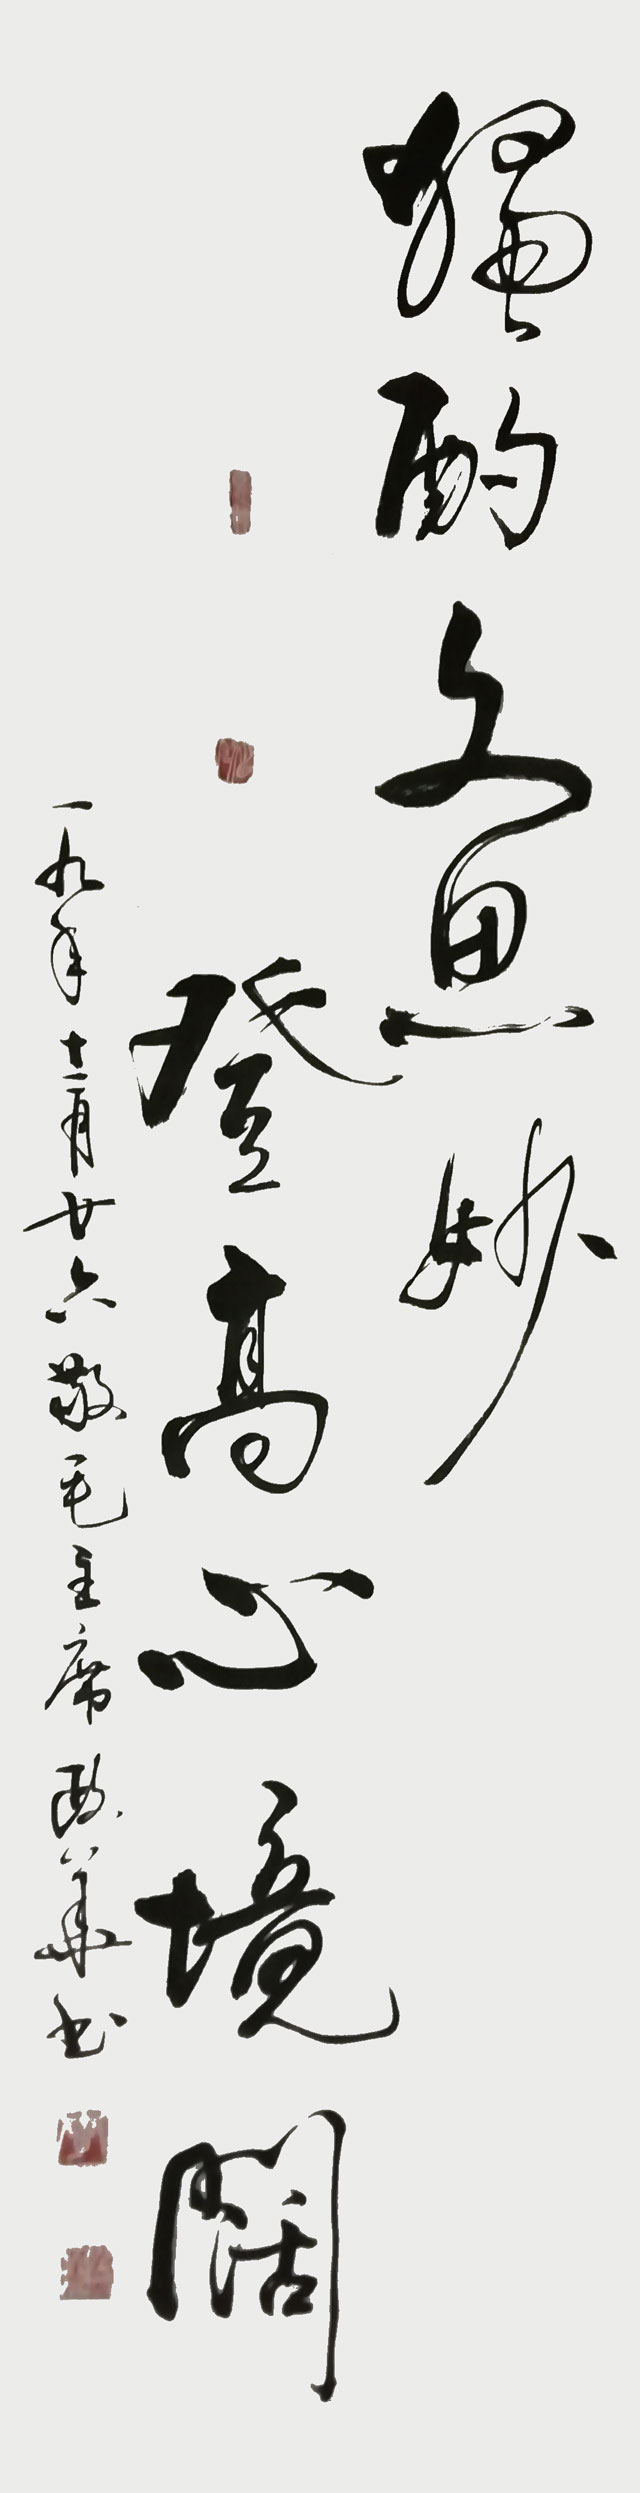 独酌意妙
登高心境阔
一九年十二月廿六敬毛主席 华书